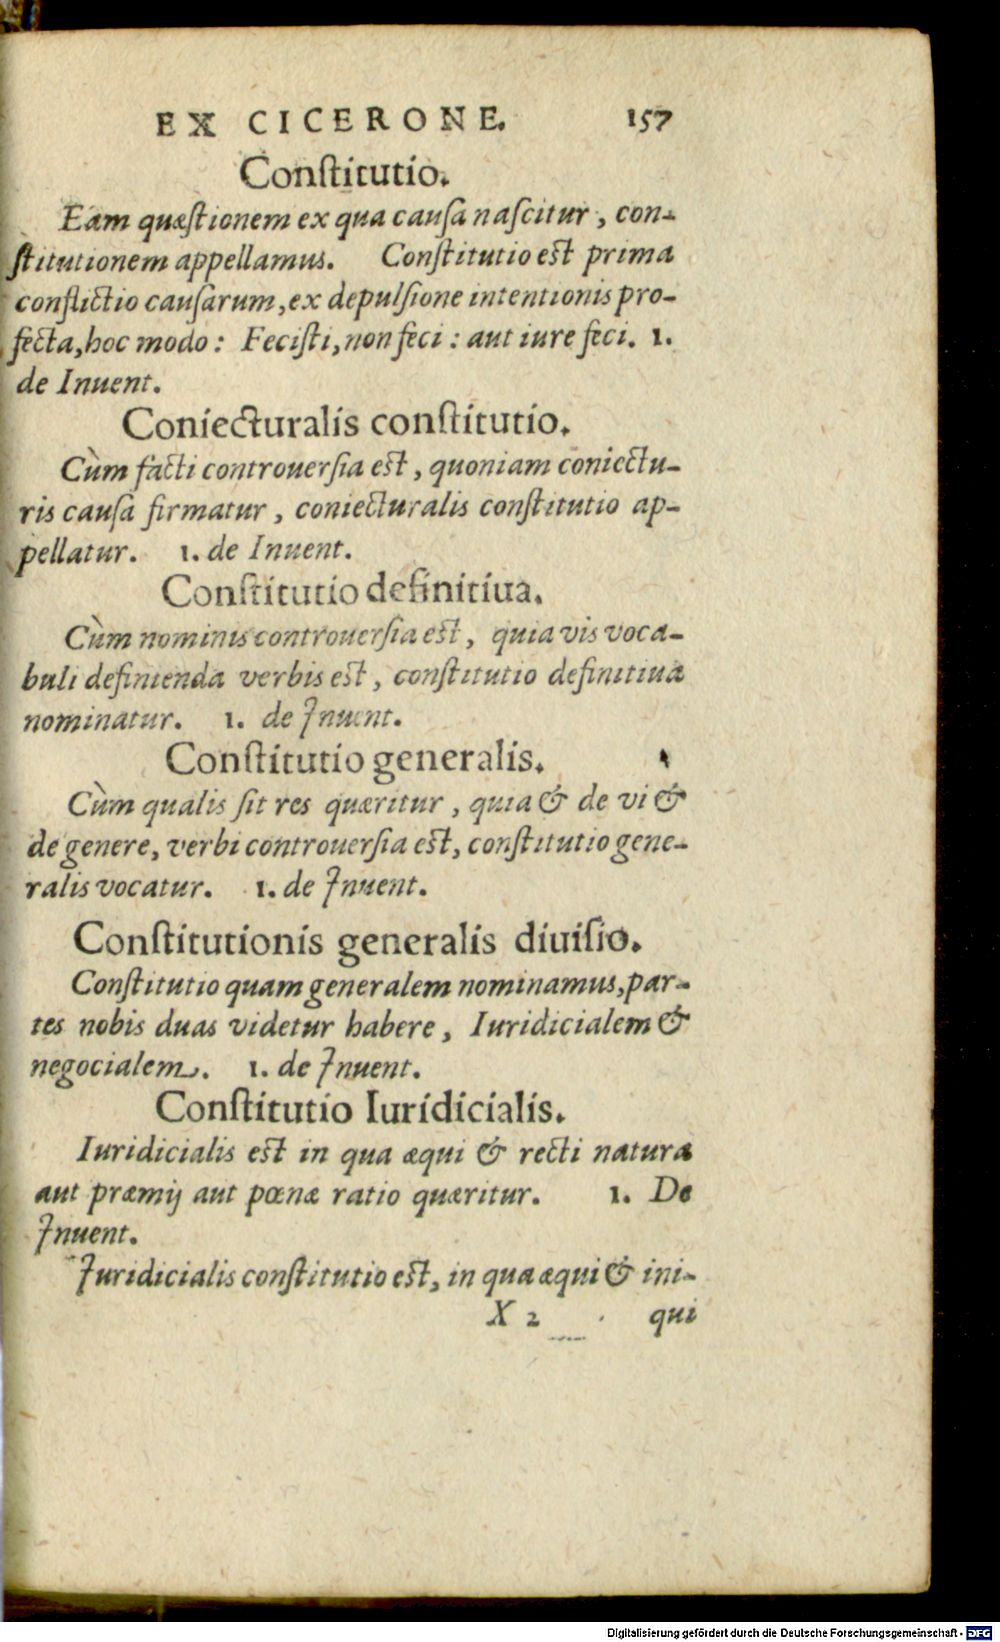 EX CICERONE. 157
Conſtitutio.
Eam quæſtionem ex qua cauſa naſcitur, con-
ſtitutionem appellamus. Conſtitutio eſt prima
conflictio cauſarum, ex depulſione intentionis pro-
fecta, hoc modo: Feciſti, non feci: aut iure feci. 1.
de Inuent.
Coniecturalis conſtitutio.
Cùm facti controuerſia eſt, quoniam coniectu-
ris cauſa firmatur, coniecturalis conſtitutio ap-
pellatur. 1. de Inuent.
Conſtitutio definitiua.
Cùm nominis controuerſia eſt, quia vis voca-
buli definienda verbis eſt, conſtitutio definitiua
nominatur. 1. de Inuent.
Conſtitutio generalis.
Cùm qualis ſit res quæritur, quia & de vi &
de genere, verbi controuerſia eſt, conſtitutio gene-
ralis vocatur. 1. de Inuent.
Conſtitutionis generalis diuiſio.
Conſtitutio quam generalem nominamus, par-
tes nobis duas videtur habere, Iuridicialem &
negocialem. 1. de Inuent.
Conſtitutio Iuridicialis.
Iuridicialis eſt in qua æqui & recti natura
aut præmij aut pœnæ ratio quæritur. 1. De
Inuent.
Iuridicialis conſtitutio eſt, in qua æqui & ini-
X 2 qui
Digitalisierung gefördert durch die Deutsche Forschungsgemeinschaft - DFG